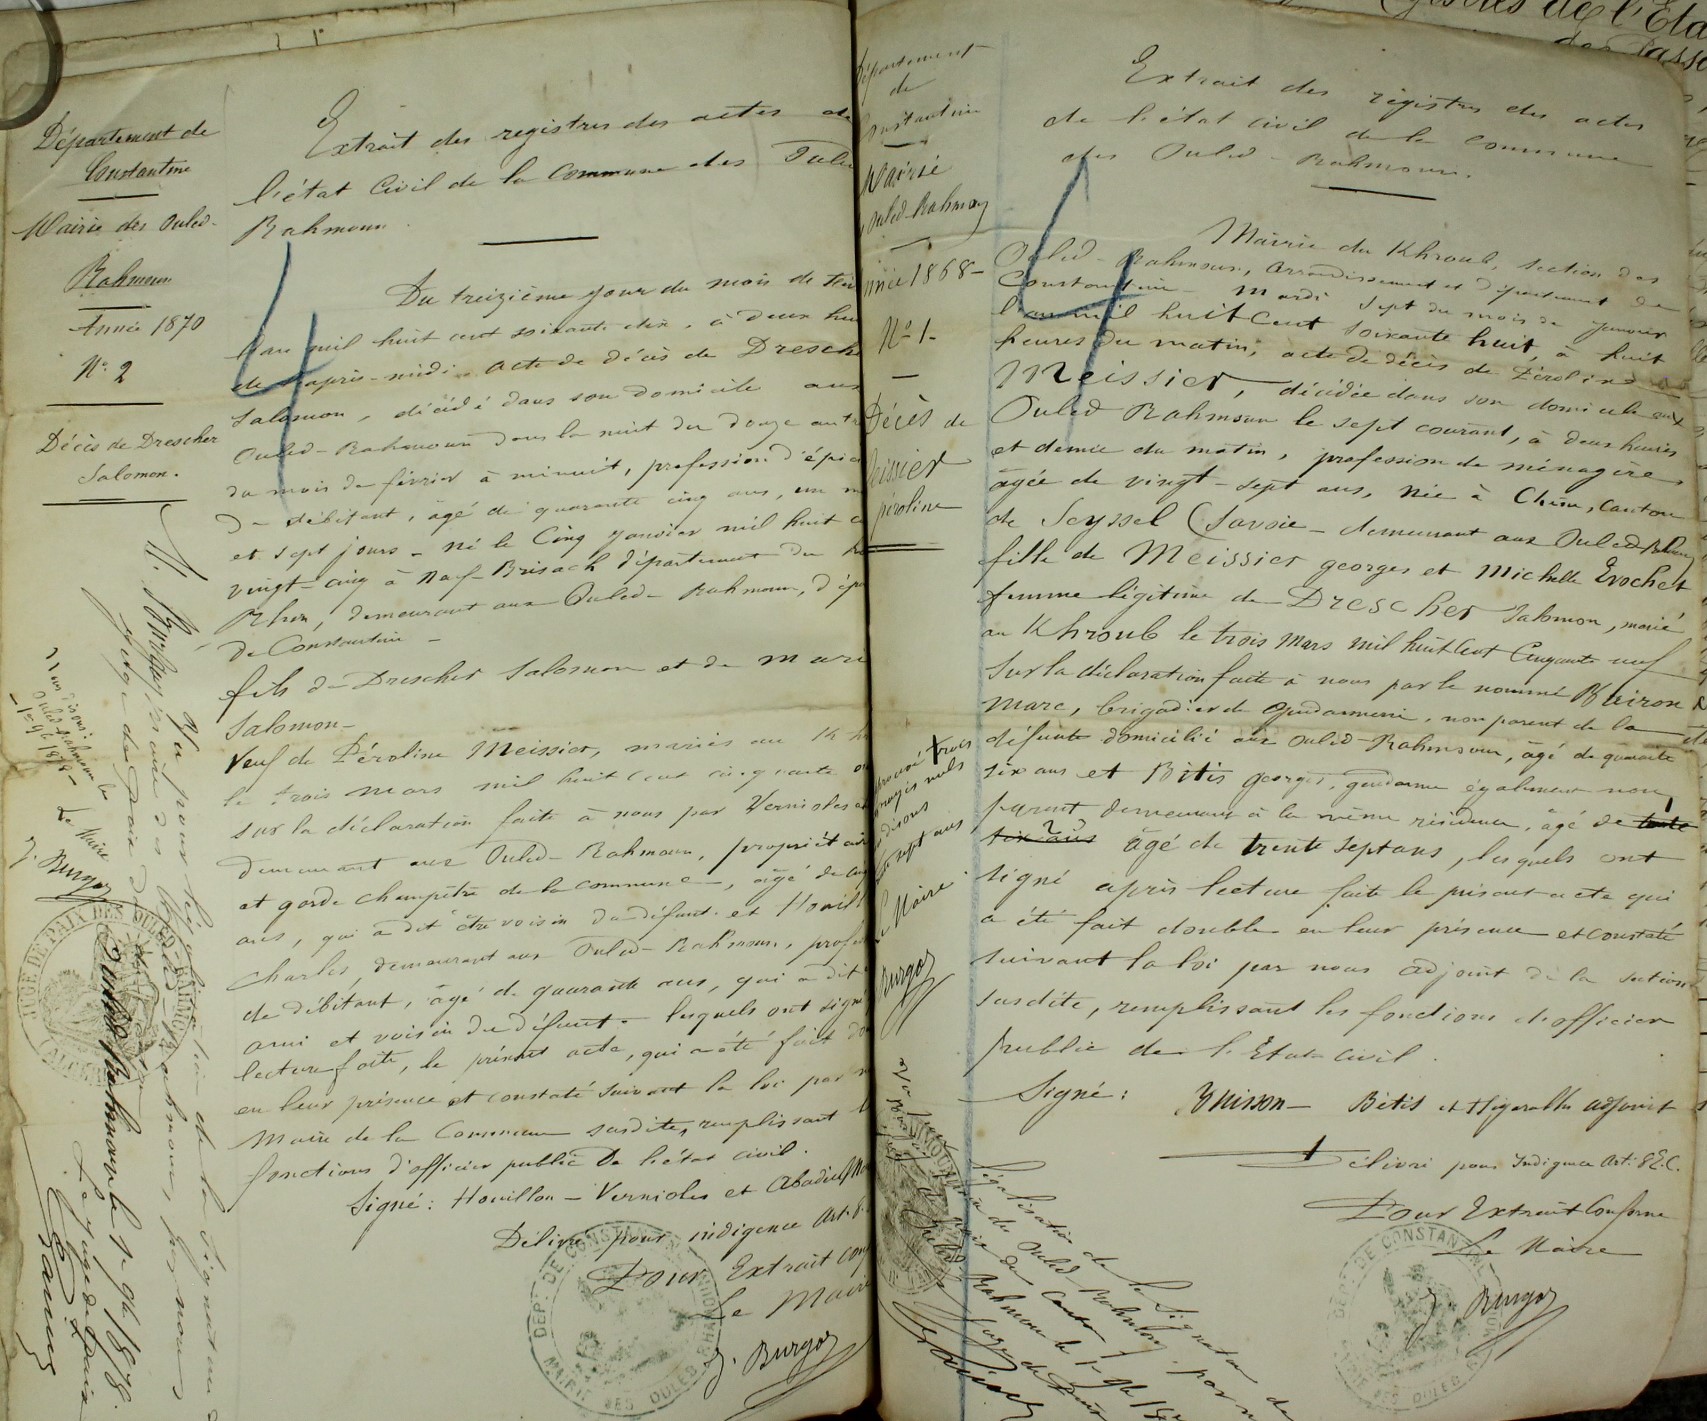 Département de
Constantine
Mairie des Ouled-
Rahmoun
Année 1870
N° 2
Décès de Drescher
Salomon.
Extrait des registres des actes de
l'état Civil de la Commune des Ouled
Rahmoun.
Du treizième jour du mois de
l'an mil huit cent soixante dix, à deux
de l'après-midi. Acte de décès de Dresch
Salomon, décédé dans son domicile aux
Ouled-Rahmoun dans la nuit du douze
du mois de février à minuit, profession d'épic
de débitant, âgé de quarante cinq ans, un m
et sept jours - né le Cinq janvier mil huit c
vingt-cinq à Neuf-Brisach département du
Rhin, demeurant aux Ouled-Rahmoun, dépa
de Constantine -
fils de Drescher Salomon et de
Salomon -
Veuf de Péroline Meissier, mariés au Kh
le trois mars mil huit cent cinquante
sur la déclaration faite à nous par Vernioles
demeurant aux Ouled-Rahmoun, propriétaire
et garde champêtre de la commune, âgé de
ans, qui a dit être voisin du défunt et Houill
Charles, demeurant aux Ouled-Rahmoun, profes
de débitant, âgé de quarante ans, qui a dit
ami et voisin du défunt. lesquels ont signé
lecture faite, le présent acte, qui a été fait do
en leur présence et constaté suivant la loi par
Maire de la Commune susdite, remplissant l
fonctions d'officier public de l'état civil.
Signé: Houillon - Vernioles et
Délivré pour indigence Art. 8
Pour Extrait Con
Le Maire
J. Burgoz
Vu pour légalisation de la signature de
M. Burgoz, maire des Ouled Rahmoun, par nous
juge de paix
Ouled Rahmoun le 1er 9bre 1878.
Le juge de Paix
Ouled Rahmoun le
1er 9bre 1878 -
Le Maire
J. Burgoz
JUGE DE PAIX DES OULED-RAHMOUN
DEPT DE CONSTANTINE
MAIRIE DES OULED-RAHMOUN
Département
de
Constantine
Mairie
Ouled-Rahmoun
nnée 1868 -
N° 1.
Décès de
eissier
Péroline
Extrait des registres des actes
de l'état civil de la commune
des Ouled-Rahmoun.
Mairie du Khroub, section des
Ouled-Rahmoun, arrondissement et département de
Constantine - Mardi sept du mois de janvier
l'an mil huit cent soixante huit, à huit
heures du matin, acte de décès de Péroline
Meissier, décédée dans son domicile aux
Ouled Rahmoun le sept courant, à deux heures
et demie du matin, profession de ménagère
âgée de vingt-sept ans, née à Chêne, canton
de Seyssel (Savoie - demeurant aux Ouled-Rahmoun
fille de Meissier georges et Michelle Evochet
femme légitime de Drescher Salomon, marié
au Khroub le trois mars mil huit cent Cinquante neuf
Sur la déclaration faite à nous par le nommé Buiron
Marc, brigadier de Gendarmerie, non parent de la
défunte domicilié aux Ouled-Rahmoun, âgé de quarante
six ans et Bétis georges, gendarme également non
parent demeurant à la même résidence, âgé de trente
six ans âgé de trente sept ans, lesquels ont
signé après lecture faite le présent acte qui
a été fait double en leur présence et constaté
suivant la loi par nous adjoint de la section
susdite, remplissant les fonctions d'officier
public de l'Etat civil.
Signé: Buisson - Bétis et adjoint
Délivré pour Indigence Art. 8 E.C.
Pour Extrait Conforme
Le Maire
J. Burgoz
trois
nuls
disons
sept ans
Le Maire
Burgoz
Légalisation de la Signature de
des Ouled Rahmoun, par
Canton
Rahmoun le 1er 9bre
Juge de Paix
DEPT DE CONSTANTINE
MAIRIE DES OULED-RAHMOUN